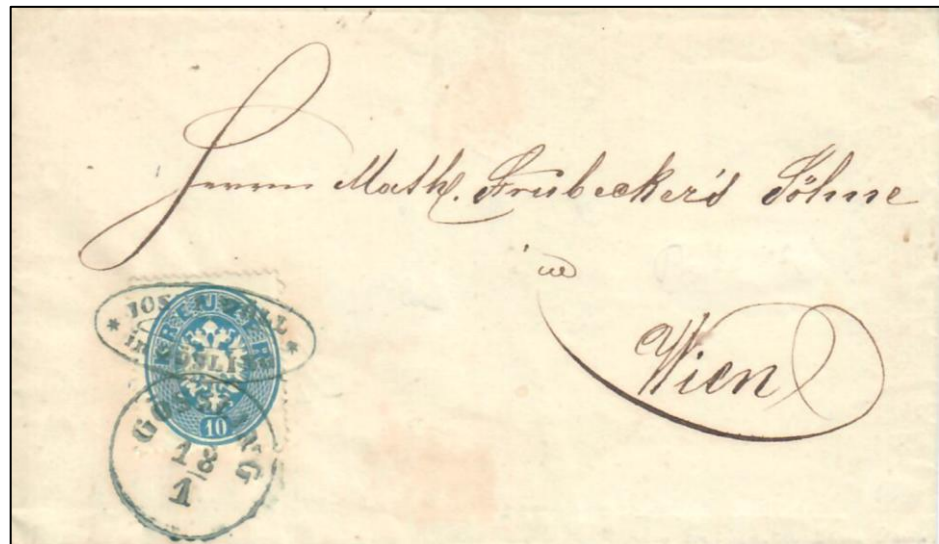 Herrn Math. Frübecker's Söhne
in
Wien
KREUZER
10
18
1